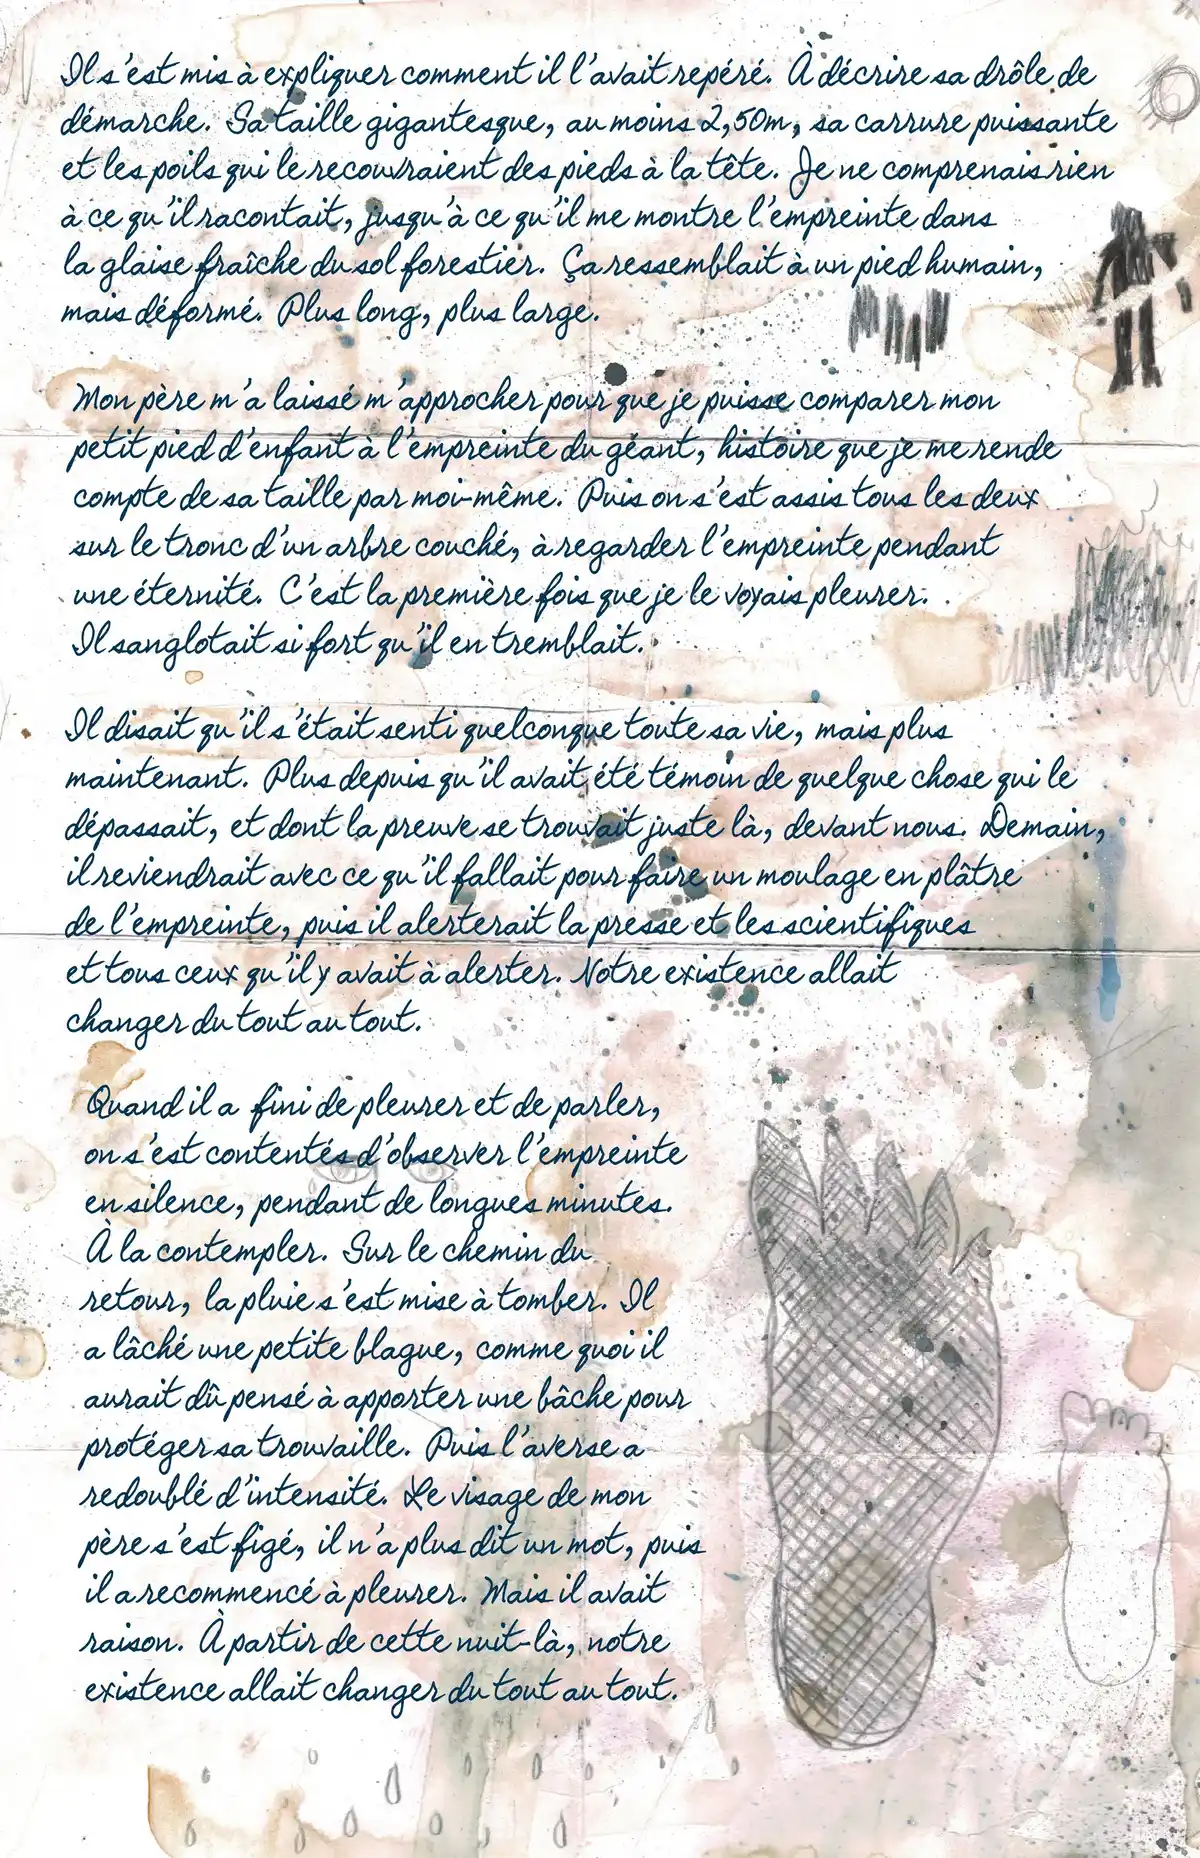 Il s'est mis à expliquer comment il l'avait repéré. À décrire sa drôle de
démarche. Sa taille gigantesque, au moins 2,50m, sa carrure puissante
et les poils qui le recouvraient des pieds à la tête. Je ne comprenais rien
à ce qu'il racontait, jusqu'à ce qu'il me montre l'empreinte dans
la glaise fraîche du sol forestier. Ça ressemblait à un pied humain,
mais déformé. Plus long, plus large.
Mon père m'a laissé m'approcher pour que je puisse comparer mon
petit pied d'enfant à l'empreinte du géant, histoire que je me rende
compte de sa taille par moi-même. Puis on s'est assis tous les deux
sur le tronc d'un arbre couché, à regarder l'empreinte pendant
une éternité. C'est la première fois que je le voyais pleurer.
Il sanglotait si fort qu'il en tremblait.
Il disait qu'il s'était senti quelconque toute sa vie, mais plus
maintenant. Plus depuis qu'il avait été témoin de quelque chose qui le
dépassait, et dont la preuve se trouvait juste là, devant nous. Demain,
il reviendrait avec ce qu'il fallait pour faire un moulage en plâtre
de l'empreinte, puis il alerterait la presse et les scientifiques
et tous ceux qu'il y avait à alerter. Notre existence allait
changer du tout au tout.
Quand il a fini de pleurer et de parler,
on s'est contentés d'observer l'empreinte
en silence, pendant de longues minutes.
À la contempler. Sur le chemin du
retour, la pluie s'est mise à tomber. Il
a lâché une petite blague, comme quoi il
aurait dû pensé à apporter une bâche pour
protéger sa trouvaille. Puis l'averse a
redoublé d'intensité. Le visage de mon
père s'est figé, il n'a plus dit un mot, puis
il a recommencé à pleurer. Mais il avait
raison. À partir de cette nuit-là, notre
existence allait changer du tout au tout.